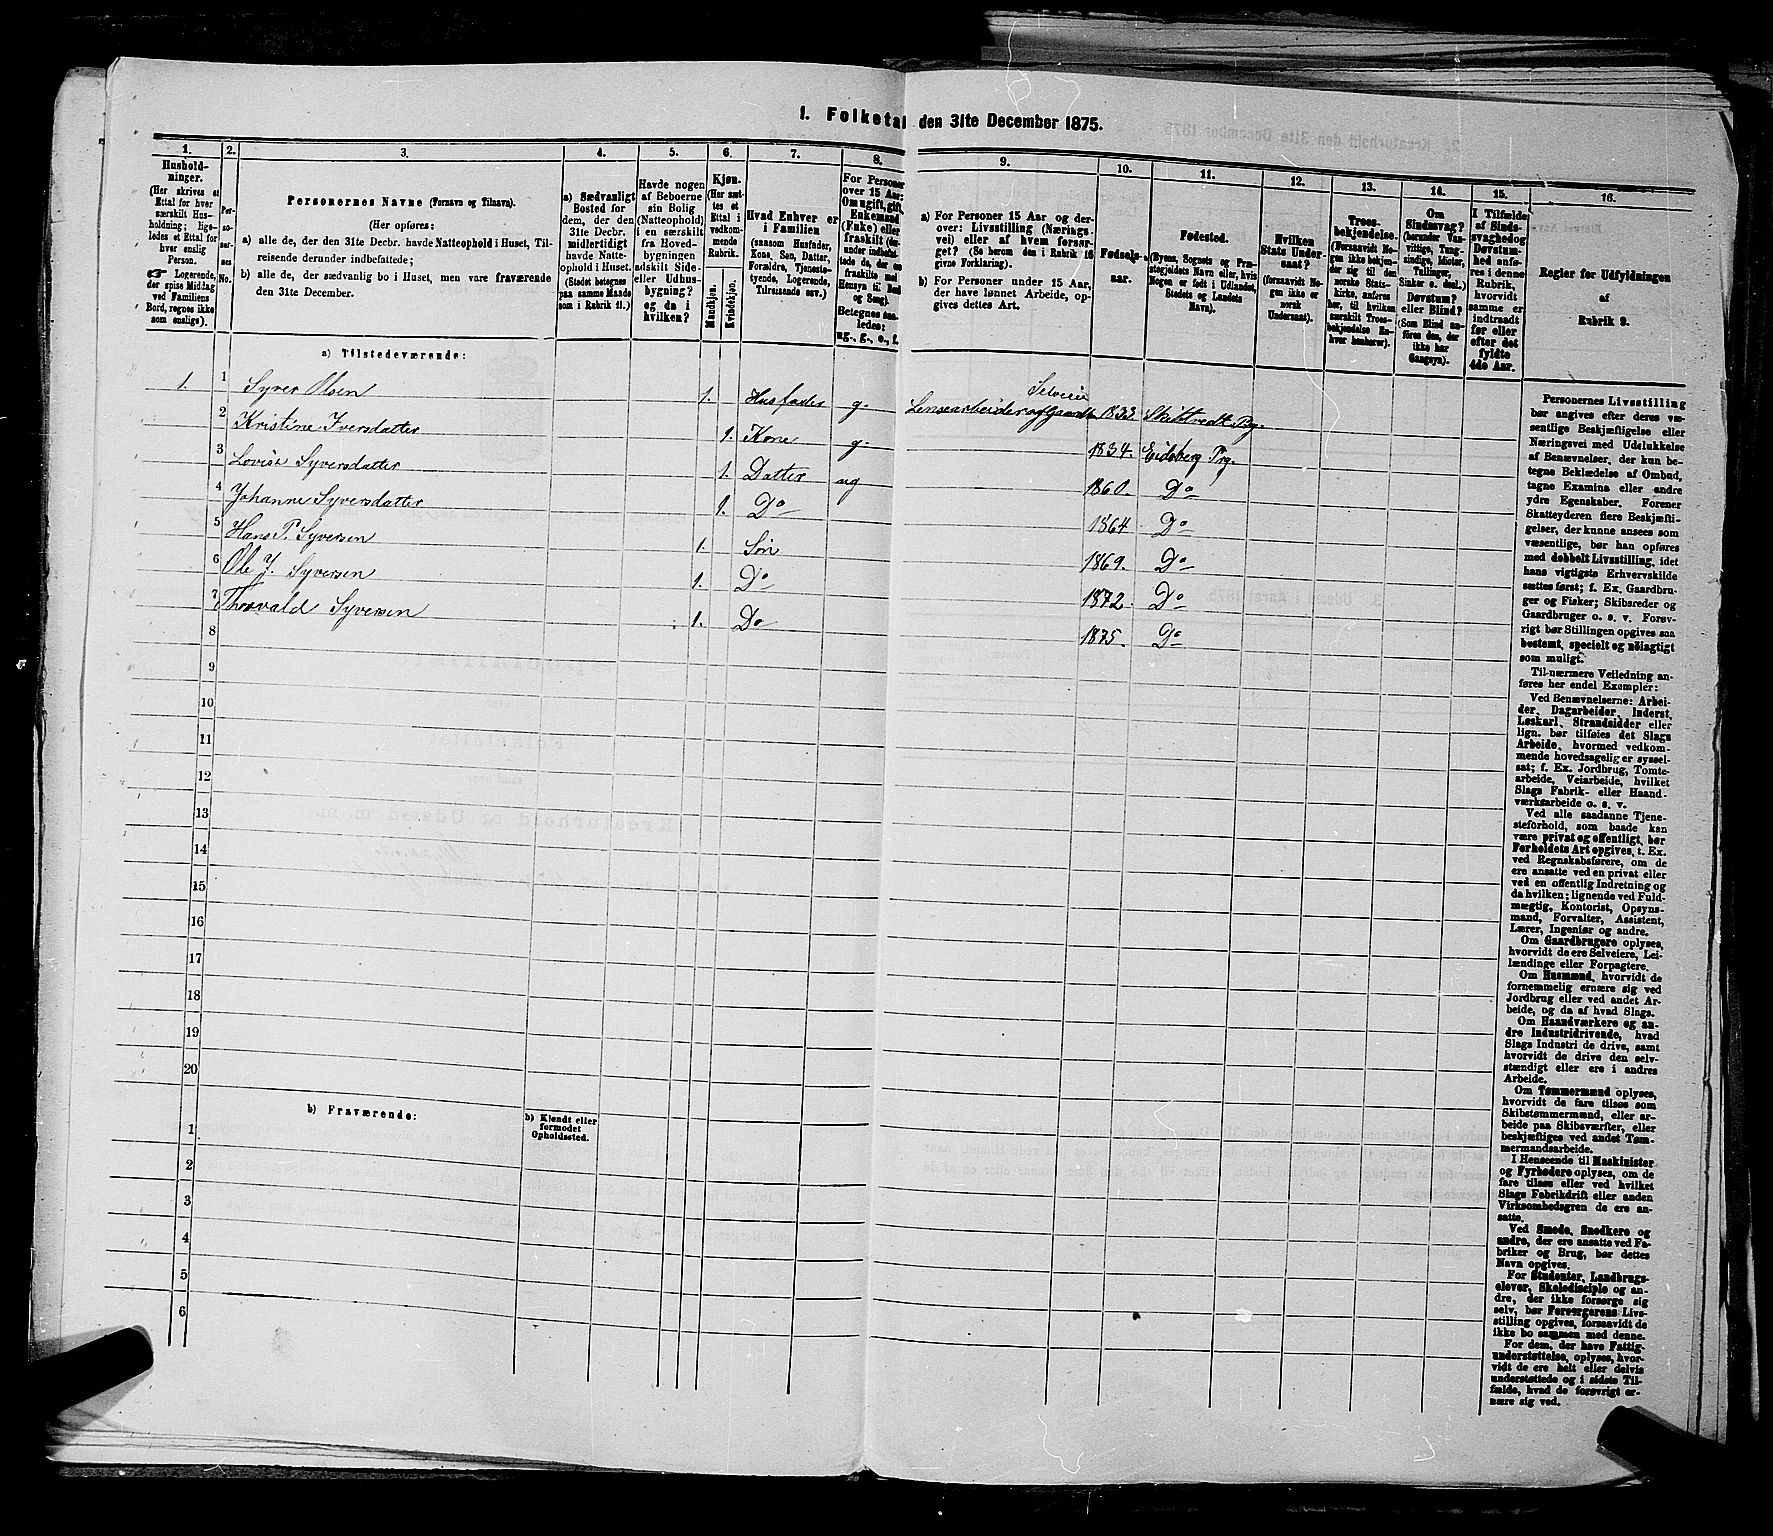 1. Folketal den 31te December 1875.
1. 2. 3. 4. 5. 6. 7. 8. 9. 10. 11. 12. 13. 14. 15. 16.
Hushold-
ninger.
(Her skrives et
Ettal for hver
særskilt Hus-
holdning; lige-
ledes et Ettal for
hver enslig
Person.
☞ Logerende,
der spise Middag
ved Familiens
Bord, regnes ikke
som enslige).
Per-
so-
ner-
nes
No.
Personernes Navne (Fornavn og Tilnavn).
(Her opføres:
a) alle de, der den 31te Decbr. havde Natteophold i Huset, Til-
reisende derunder indbefattede;
b) alle de, der sædvanlig bo i Huset, men vare fraværende
den 31te December.
a) Sædvanligt
Bosted for
dem, der den
31te Decbr.
midlertidigt
havde Natte-
ophold i Huset.
(Stedet betegnes
paa samme Maade
som i Rubrik 11.)
Havde nogen
af Beboerne
sin Bolig
(Natteophold)
i en særskilt
fra Hoved-
bygningen
adskilt Side-
eller Udhus-
bygning?
og da i
hvilken?
Kjøn.
(Her sæt-
tes et
Ettal i
vedkom-
mende
Rubrik.
Mandkjøn.
Kvindekjøn.
Hvad Enhver er
i Familien
(saasom Husfader,
Kone, Søn, Datter,
Forældre, Tjeneste-
tyende, Logerende,
Tilreisende osv.)
For Personer
over 15 Aar:
Om ugift, gift,
Enkemand
(Enke) eller
fraskilt (der-
under indbefat-
tede de, der ere
fraskilte med
Hensyn til Bord
og Seng).
Betegnes saa-
ledes:
ug., g., e., f.
a) For Personer 15 Aar og der-
over: Livsstilling (Nærings-
vei) eller af hvem forsør-
get? (Se herom den i Rubrik 16
givne Forklaring).
b) For Personer under 15 Aar,
der have lønnet Arbeide, op-
gives dettes Art.
Fødsels-
aar.
Fødested.
(Byens, Sognets og Præ-
stegjeldets Navn eller, hvis
Nogen er født i Udlandet,
Stedets og Landets
Navn).
Hvilken
Stats Under-
saat?
(forsaavidt No-
gen ikke er
norsk
Undersaat).
Troes-
bekjendelse.
(Forsaavidt No-
gen ikke bekjen-
der sig til den
norske Stats-
kirke, anføres
her særskilt Troes-
bekjendelse En-
hver henhører).
Om
Sindssvag?
(herunder Van-
vittige, Idioter,
Tullinger,
Sinker o. desl.)
Døvstum?
eller Blind?
(Som Blind an-
føres den, der
ikke har
Gangsyn).
I Tilfælde
af Sinds-
svaghed og
Døvstum-
hed anfø-
res i denne
Rubrik,
hvorvidt
samme er
indtraadt
før eller
efter det
fyldte
4de Aar.
Regler for Udfyldningen
af
Rubrik 9.
a) Tilstedeværende:
1. 1 Syver Olsen 1. Husfader g. Selveier
Lensearbeider og Gaardbr 1833 Skibtvedt Pg.
2 Kristine Iversdatter 1. Kone g. 1834. Eidsberg Prg.
3 Lovise Syversdatter 1. Datter ug 1860. Do
4 Johanne Syversdatter 1. Do 1864 Do
5 Hans P. Syversen 1. Søn 1869. Do
6 Ole J. Syversen 1. Do 1872. Do
7 Thorvald Syversen 1. Do 1875. Do
8
9
10
11
12
13
14
15
16
17
18
19
20
b) Fraværende:
b) Kjendt eller
formodet
Opholdssted.
1
2
3
4
5
6
Personernes Livsstilling
bør angives efter deres væ-
sentlige Beskjæftigelse eller
Næringsvei med Udelukkelse
af Benævnelser, der kun be-
tegne Beklædelse af Ombud,
tagne Examina eller andre
ydre Egenskaber. Forener
Skatteyderen flere Beskjæfti-
gelser, der kunne ansees som
væsentlige, bør han opføres
med dobbelt Livsstilling, idet
hans vigtigste Erhvervskilde
sættes først; f. Ex. Gaardbru-
ger og Fisker; Skibsreder og
Gaardbruger o. s. v. Forøv-
rigt bør Stillingen opgives saa
bestemt, specielt og nøiagtigt
som muligt.
Til nærmere Veiledning an-
føres her endel Exempler:
Ved Benævnelserne: Arbei-
der, Dagarbeider, Inderst,
Løskarl, Strandsidder eller
lign. bør tilføies det Slags
Arbeide, hvormed vedkom-
mende hovedsagelig er syssel-
sat; f. Ex. Jordbrug, Tomte-
arbeide, Veiarbeide, hvilket
Slags Fabrik- eller Haand-
værksarbeide o. s. v.
Ved alle saadanne Tjene-
steforhold, som baade kan
være privat og offentligt, bør
Forholdets Art opgives, t. Ex.
ved Regnskabsførere, om de
ere ansatte ved en privat eller
ved en offentlig Indretning og
da hvilken; lignende ved Fuld-
mægtig, Kontorist, Opsyns-
mand, Forvalter, Assistent,
Lærer, Ingeniør og andre.
Om Gaardbrugere oplyses,
hvorvidt de ere Selveiere, Lei-
lændinge eller Forpagtere.
Om Husmænd, hvorvidt de
fornemmelig ernære sig ved
Jordbrug eller ved andet Ar-
beide, og da af hvad Slags.
Om Haandværkere og an-
dre Industridrivende, hvad
Slags Industri de drive, samt
hvorvidt de drive den selv-
stændigt eller ere i andres
Arbeide.
Om Tømmermænd oplyses,
hvorvidt de fare tilsøs som
Skibstømmermænd, eller ar-
beide paa Skibsværfter, eller
beskjæftiges ved andet Tøm-
mermandsarbeide.
I Henseende til Maskinister
og Fyrbødere oplyses, om de
fare tilsøs eller ved hvilket
Slags Fabrikdrift eller anden
Virksomhedsgren de ere an-
satte.
Ved Smede, Snedkere og
andre, der ere ansatte ved Fa-
briker og Brug, bør dettes
Navn opgives.
For Studenter, Landbrugs-
elever, Skoledisciple og an-
dre, der ikke forsørge sig
selv, bør Forsørgerens Livs-
stilling opgives, forsaavidt de
ikke bo sammen med denne.
For dem, der have Fattig-
understøttelse, oplyses, hvor-
vidt de ere helt eller delvis
understøttede og i sidste Til-
fælde, hvad de forøvrigt er-
nære sig ved.